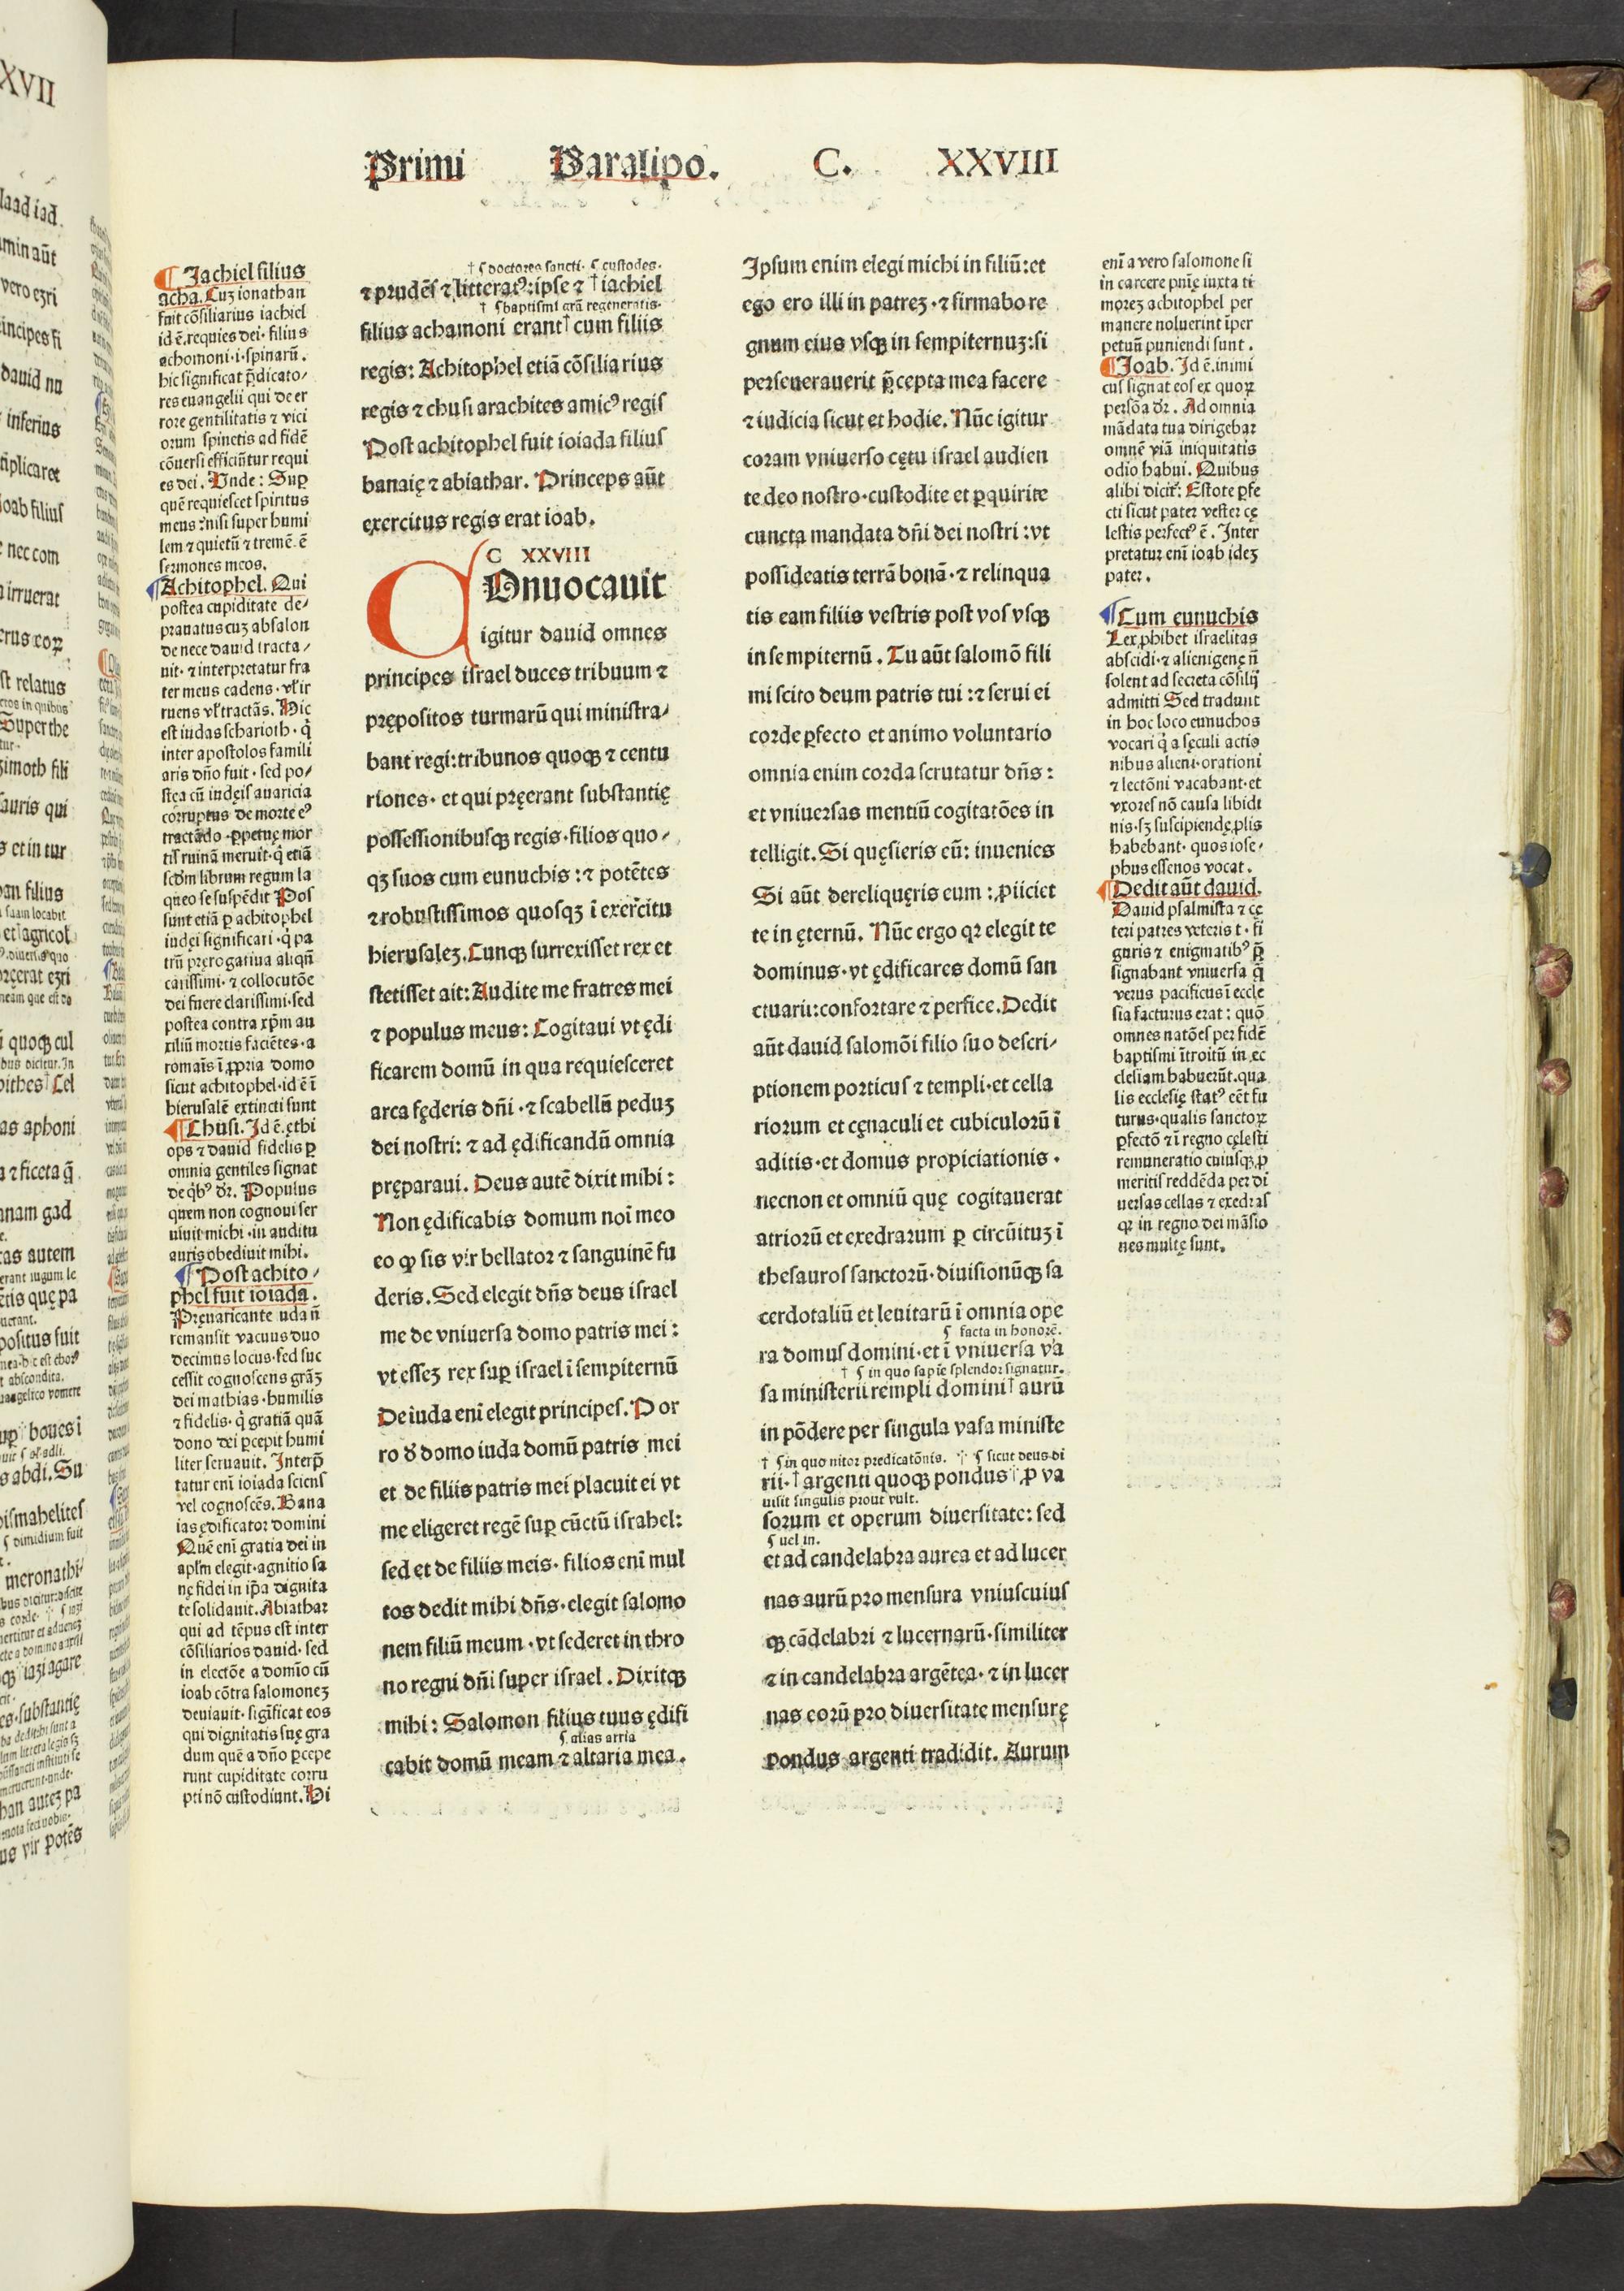 Primi Paralipo. C. XXVIII
¶ Jachiel filius
acha. Cuʒ ionathan
fuit cōſiliarius iachiel
id ē.requies dei· filius
achomoni·i·ſpinarū.
hic ſignificat p̄dicato/
res euangelii qui de er
rore gentilitatis ⁊ vici
orum ſpinetis ad fidē
cōuerſi efficiūtur requi
es dei. Vnde: Suꝑ
quē requieſcet ſpiritus
meus :niſi ſuper humi
lem ⁊ quietū ⁊ tremē. ē
ſermones meos.
¶Achitophel. Qui
poſtea cupiditate de/
prauatus cuʒ abſalon
de nece dauid tracta/
uit· ⁊ interpretatur fra
ter meus cadens· vl̓ ir
ruens vl̓ tractās. Hic
eſt iudas ſcharioth· q̓
inter apoſtolos famili
aris dn̄o fuit· ſed po/
ſtea cū indęis auaricia
corruptus de morte eꝰ
tractādo ·ꝑpetuę mor
tiſ ruinā meruit· q̓ etiā
ſcd̓m librum regum la
queo ſe ſuſpēdit Poſ
ſunt etiā ꝑ achitophel
iudei ſignificari ·q̓ pa
trū pręrogatiua aliqn̄
cariſſimi· ⁊ collocutōe
dei fuere clariſſimi·ſed
poſtea contra xp̄m au
xiliū mortis faciētes·a
romaīs ī ꝓpria domo
ſicut achitophel·id ē ī
hieruſalē extincti ſunt
¶Chuſi. Id ē. ęthi
ops ⁊ dauid fidelis ꝑ
omnia gentiles ſignat
de q̓bꝰ dr̄. Populus
quem non cognoui ſer
uiuit michi ·in auditu
auris obediuit mihi.
¶Poſt achito/
phel fuit ioiada.
Pręuaricante iuda n̄
remanſit vacuus duo
decimus locus·ſed ſuc
ceſſit cognoſcens grāʒ
dei mathias·humilis
⁊ fidelis· q̓ gratiā quā
dono dei ꝑcepit humi
liter ſeruauit. Interp̄
tatur enī ioiada ſciens
vel cognoſcēs. Bana
ias ędificator domini
Quē enī gratia dei in
apl̓m elegit·agnitio ſa
nę fidei in ip̄a dignita
te ſolidauit. Abiathar
qui ad tēpus eſt inter
cōſiliarios dauid· ſed
in electōe a domīo cū
ioab cōtra ſalomoneʒ
deuiauit· ſigīficat eos
qui dignitatis ſuę gra
dum quē a dn̄o ꝑcepe
runt cupiditate corru
pti nō cuſtodiunt. Hi
† ¶ doctores ſancti· ¶ cuſtodes.
⁊ prudēſ ⁊ litteratꝰ:ipſe ⁊ †iachiel
† ¶ baptiſmi grā regeneratis.
filius achamoni erant† cum filiis
regis: Achitophel etiā cōſiliarius
regis ⁊ chuſi arachites amicꝰ regiſ
Poſt achitophel fuit ioiada filiuſ
banaię ⁊ abiathar. Princeps aūt
exercitus regis erat ioab.
C XXVIII
COnuocauit
igitur dauid omnes
principes iſrael duces tribuum ⁊
prępoſitos turmarū qui miniſtra/
bant regi:tribunos quoqꝫ ⁊ centu
riones· et qui pręerant ſubſtantię
poſſeſſionibuſqꝫ regis·filios quo/
qꝫ ſuos cum eunuchis :⁊ potētes
⁊ robuſtiſſimos quoſqꝫ ī exercitu
hieruſaleʒ. Cunqꝫ ſurrexiſſet rex et
ſtetiſſet ait: Audite me fratres mei
⁊ populus meus: Cogitaui vt ędi
ficarem domū in qua requieſceret
arca fęderis dn̄i ·⁊ ſcabellū peduʒ
dei noſtri: ⁊ ad ędificandū omnia
pręparaui. Deus autē dixit mihi :
Non ędificabis domum noī meo
eo ꝙ ſis vir bellator ⁊ ſanguinē fu
deris. Sed elegit dn̄s deus iſrael
me de vniuerſa domo patris mei :
vt eſſeʒ rex ſuꝑ iſrael ī ſempiternū
De iuda enī elegit principeſ. Por
ro ꝺ domo iuda domū patris mei
et de filiis patris mei placuit ei vt
me eligeret regē ſuꝑ cūctū iſrahel:
ſed et de filiis meis· filios enī mul
tos dedit mihi dn̄s·elegit ſalomo
nem filiū meum ·vt ſederet in thro
no regni dn̄i ſuper iſrael . Dixitqꝫ
mihi: Salomon filius tuus ędifi
¶ alias atria
cabit domū meam ⁊ altaria mea .
Ipſum enim elegi michi in filiū:et
ego ero illi in patreʒ ·⁊ firmabo re
gnum eius vſqꝫ in ſempiternuʒ:ſi
perſeuerauerit p̄cepta mea facere
⁊ iudicia ſicut et hodie. Nūc igitur
coram vniuerſo cętu iſrael audien
te deo noſtro·cuſtodite et ꝑquirite
cuncta mandata dn̄i dei noſtri :vt
poſſideatis terrā bonā ·⁊ relinqua
tis eam filiis veſtris poſt voſ vſqꝫ
in ſempiternū. Tu aūt ſalomō fili
mi ſcito deum patris tui :⁊ ſerui ei
corde ꝑfecto et animo voluntario
omnia enim corda ſcrutatur dn̄s :
et vniuerſas mentiū cogitatōes in
telligit. Si quęſieris eū: inuenies
Si aūt dereliquęris eum :ꝓiiciet
te in ęternū. Nūc ergo qꝛ elegit te
dominus ·vt ędificares domū ſan
ctuarii:confortare ⁊ perfice. Dedit
aūt dauid ſalomōi filio ſuo deſcri/
ptionem porticuſ ⁊ templi·et cella
riorum et cęnaculi et cubiculorū ī
aditis·et domus propiciationis .
necnon et omniū quę cogitauerat
atriorū et exedrarum ꝑ circūituʒ ī
theſauroſ ſanctorū·diuiſionūqꝫ ſa
cerdotaliū et leuitarū ī omnia ope
¶ facta in honorē.
ra domuſ domini·et ī vniuerſa va
† ¶ in quo ſapīe ſplendor ſignatur.
ſa miniſterii templi domini† aurū
in pōdere per ſingula vaſa miniſte
† ¶ in quo nitor predicatōnis. ¶ ſicut deus di
rii·† argenti quoqꝫ pondus ꝓ va
uiſit ſingulis prout vult.
ſorum et operum diuerſitate: ſed
¶ uel in.
et ad candelabra aurea et ad lucer
nas aurū pro menſura vniuſcuiuſ
qꝫ cādelabri ⁊ lucernarū·ſimiliter
⁊ in candelabra argētea· ⁊ in lucer
nas eorū pro diuerſitate menſurę
pondus argenti tradidit. Aurum
enī a vero ſalomone ſi
in carcere pnīę iuxta ti
moreʒ achitophel per
manere noluerint īper
petuū puniendi ſunt .
¶Joab. Id ē.inimi
cuſ ſignat eoſ ex quoꝝ
perſōa dr̄. Ad omnia
mādata tua dirigebar
omnē viā iniquitatis
odio habui. Quibus
alibi dicit̄: Eſtote ꝑfe
cti ſicut pater veſter cę
leſtis perfectꝰ ē . Inter
pretatur enī ioab ideʒ
pater.
¶Cum eunuchis
Lex ꝓhibet iſraelitas
abſcidi·⁊ alienigenę n̄
ſolent ad ſecreta cōſilij
admitti Sed tradunt
in hoc loco eunuchos
vocari q̓ a ſęculi actio
nibus alieni·orationi
⁊ lectōni vacabant·et
vxoreſ nō cauſa libidi
nis·ſʒ ſuſcipiendę ꝓlis
habebant· quos ioſe/
phus eſſenos vocat .
¶Dedit aūt dauid.
Dauid pſalmiſta ⁊ cę
teri patres veteris t· fi
guris ⁊ enigmatibꝰ p̄
ſignabant vniuerſa q̄
verus pacificus ī eccle
ſia facturus erat : quō
omnes natōeſ per fidē
baptiſmi ītroitū in ec
cleſiam habuerūt·qua
lis eccleſię ſtatꝰ eēt fu
turus·qualis ſanctoꝝ
ꝑfectō ⁊ ī regno cęleſti
remuneratio cuiuſqꝫ ꝓ
meritiſ reddēda per di
uerſas cellas ⁊ exedraſ
qꝛ in regno dei māſio
nes multę ſunt.